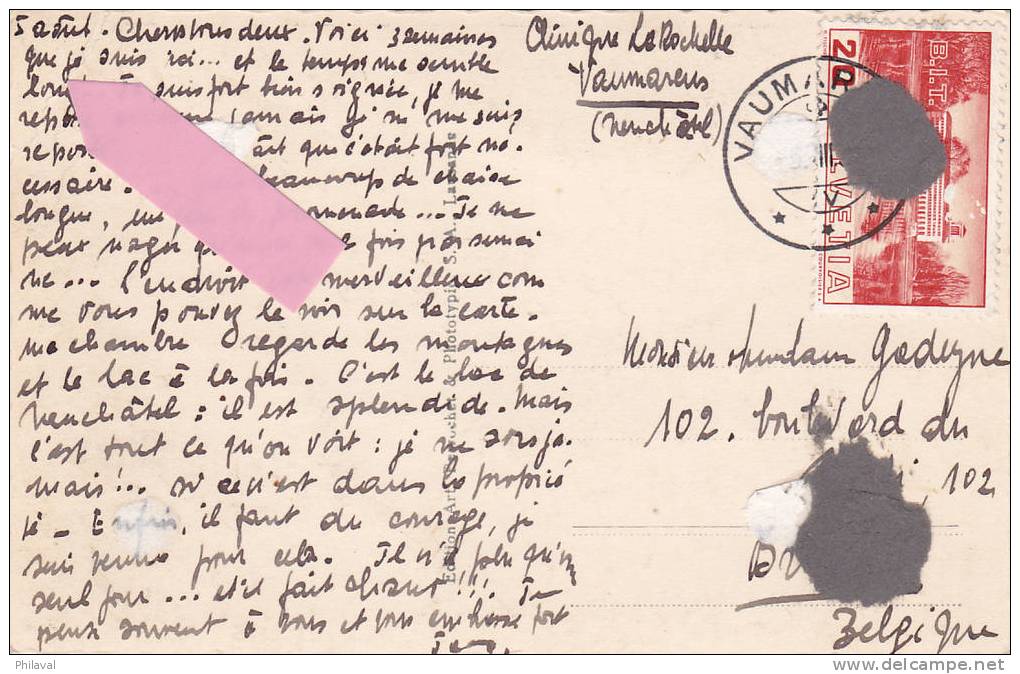 5 août. Chers tous deux. Voici 3 semaines
que je suis ici... et le temps me semble
long suis fort bien soignée, je me
repo jamais je ne me suis
repos ait que c'était fort né-
cessaire. beaucoup de chaise
longue, un menade... Je ne
peux nager qu fois par semai
ne... l'endroit merveilleux com
me vous pouvez le voir sur la carte.
ma chambre regarde les montagnes
et le lac à la fois. C'est le lac de
Neuchâtel : il est splendide. Mais
c'est tout ce qu'on voit : je ne sors ja-
mais!.. si ce n'est dans la proprié
té - Enfin, il faut du courage, je
suis venue pour cela. Il n'a plu qu'un
seul jour... et il fait chaud!!! Je
pense souvent à vous et vous embrasse fort
Clinique La Rochelle
Vaumarcus
(Neuchâtel)
VAUMAR
VIII
20
B.I.T.
HELVETIA
Monsieur Madame Godeyne
102. boulevard du
i, 102
Br
Belgique
Edition Art. Perrochet & Phototypie S. A., Lausanne
Philaval
delcampe.net